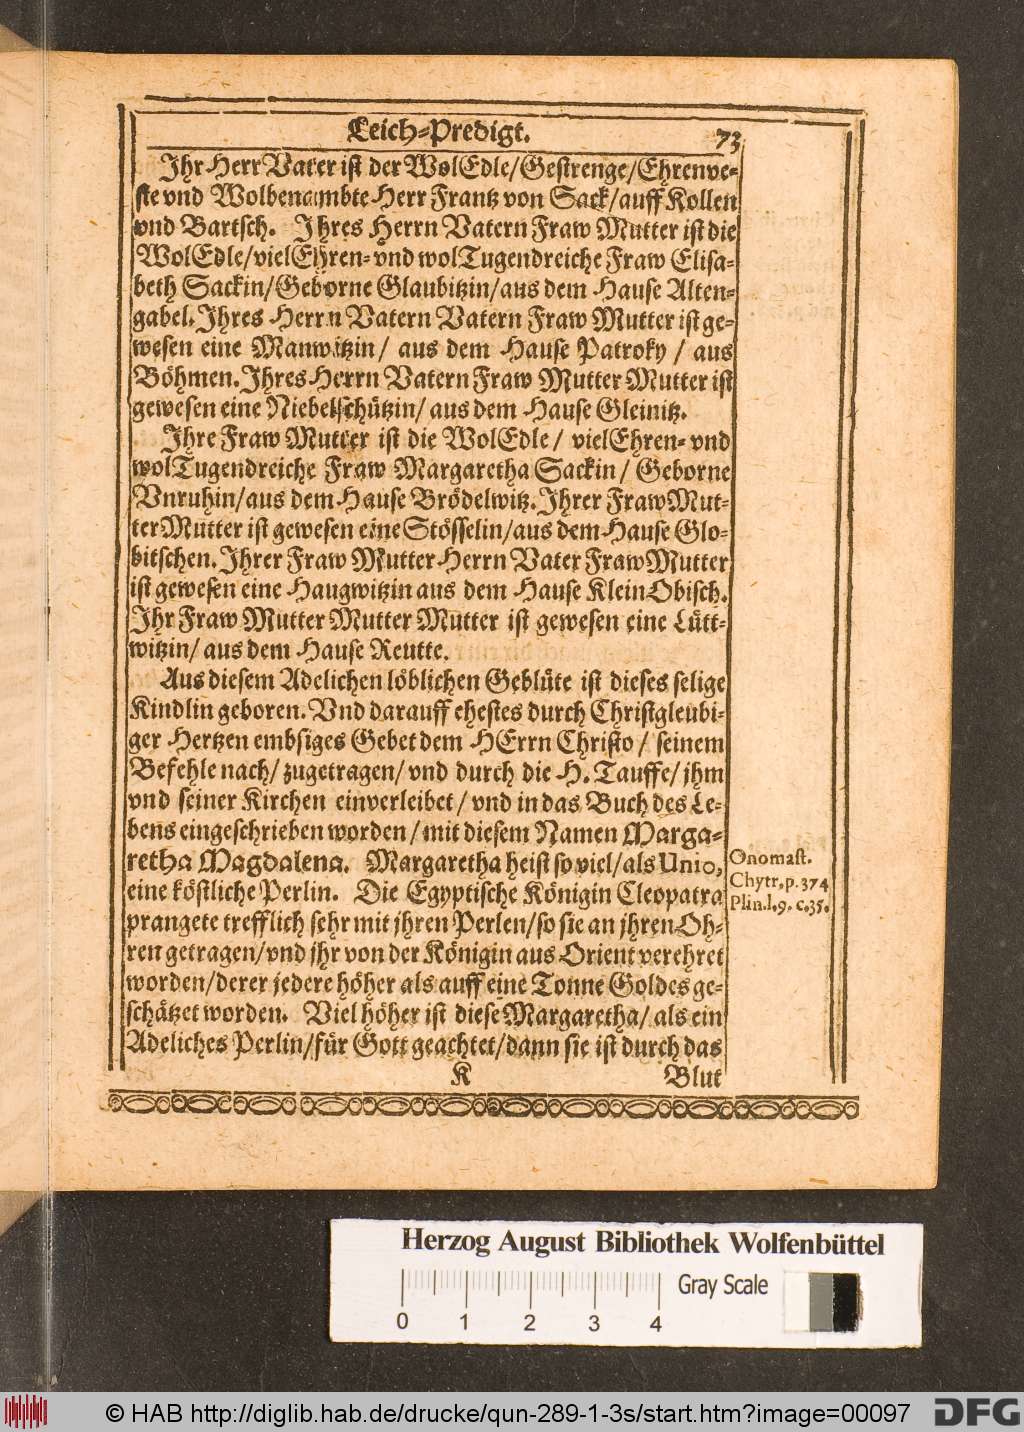 Leich-Predigt. 73
Ihr Herr Vater ist der WolEdle/Gestrenge/Ehrenve-
ste vnd Wolbenambte Herr Frantz von Sack/auff Kollen
vnd Bartsch. Ihres Herrn Vatern Fraw Mutter ist die
WolEdle/vielEhren- vnd wolTugendreiche Fraw Elisa-
beth Sackin/Geborne Glaubitzin/aus dem Hause Alten-
gabel. Ihres Herrn Vatern Vatern Fraw Mutter ist ge-
wesen eine Manwitzin/ aus dem Hause Patroky / aus
Böhmen. Ihres Herrn Vatern Fraw Mutter Mutter ist
gewesen eine Niebelschützin/ aus dem Hause Gleinitz.
Ihre Fraw Mutter ist die WolEdle / vielEhren- vnd
wolTugendreiche Fraw Margaretha Sackin / Geborne
Vnruhin/aus dem Hause Brödelwitz. Ihrer Fraw Mut-
ter Mutter ist gewesen eine Stösselin/aus dem Hause Glo-
bitschen. Ihrer Fraw Mutter Herrn Vater Fraw Mutter
ist gewesen eine Haugwitzin aus dem Hause Klein Obisch.
Ihr Fraw Mutter Mutter Mutter ist gewesen eine Lütt-
witzin/ aus dem Hause Reutte.
Aus diesem Adelichen löblichen Geblüte ist dieses selige
Kindlin geboren. Vnd darauff ehestes durch Christgleubi-
ger Hertzen embsiges Gebet dem HErrn Christo / seinem
Befehle nach/ zugetragen/ vnd durch die H. Tauffe/ jhm
vnd seiner Kirchen einverleibet / vnd in das Buch des Le-
bens eingeschrieben worden / mit diesem Namen Marga-
retha Magdalena. Margaretha heist so viel/als Unio,
eine köstliche Perlin. Die Egyptische Königin Cleopatra
prangete trefflich sehr mit jhren Perlen/so sie an jhren Oh-
ren getragen/vnd jhr von der Königin aus Orient verehret
worden/derer jedere höher als auff eine Tonne Goldes ge-
schätzet worden. Viel höher ist diese Margaretha/ als ein
Adeliches Perlin/für Gott geachtet/dann sie ist durch das
K Blut
Onomast.
Chytr, p. 374
Plin. l. 9. c. 35.
Herzog August Bibliothek Wolfenbüttel
Gray Scale
0 1 2 3 4
© HAB http://diglib.hab.de/drucke/qun-289-1-3s/start.htm?image=00097
DFG